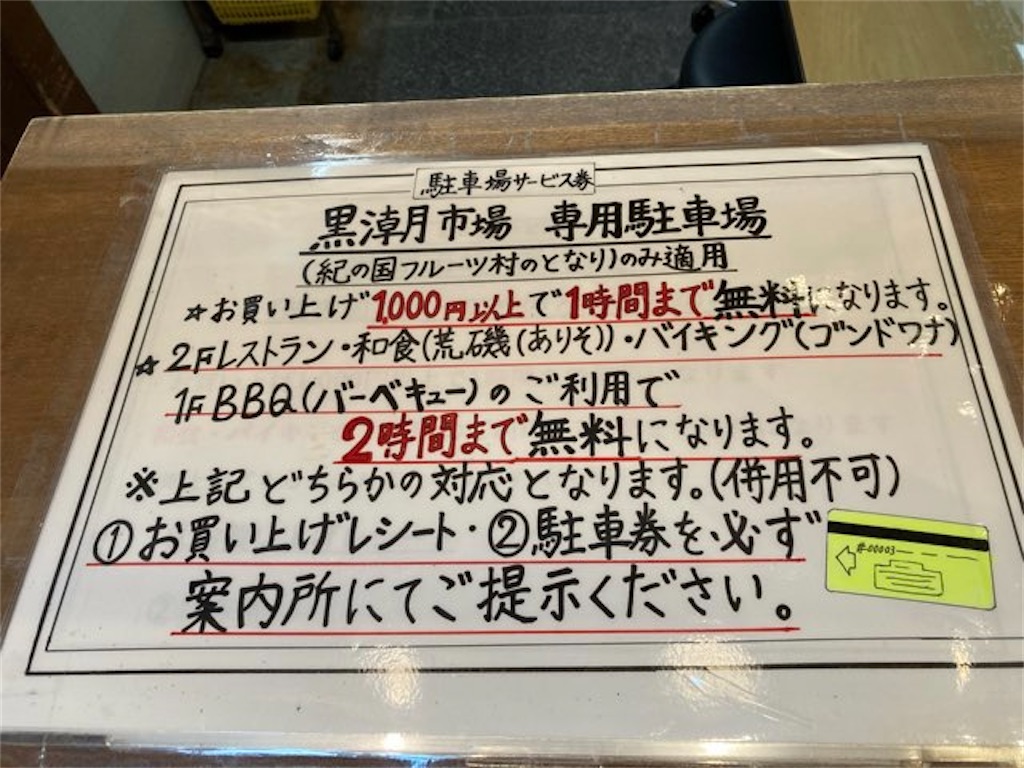 駐車場サービス券
黒潮市場 専用駐車場
(紀の国フルーツ村のとなり)のみ適用
☆お買い上げ1,000円以上で1時間まで無料になります。
☆2Fレストラン・和食(荒磯(ありそ))・バイキング(ゴンドワナ)
1F BBQ(バーベキュー)のご利用で
2時間まで無料になります。
※上記どちらかの対応となります。(併用不可)
①お買い上げレシート・②駐車券を必ず
#-00003
案内所にてご提示ください。